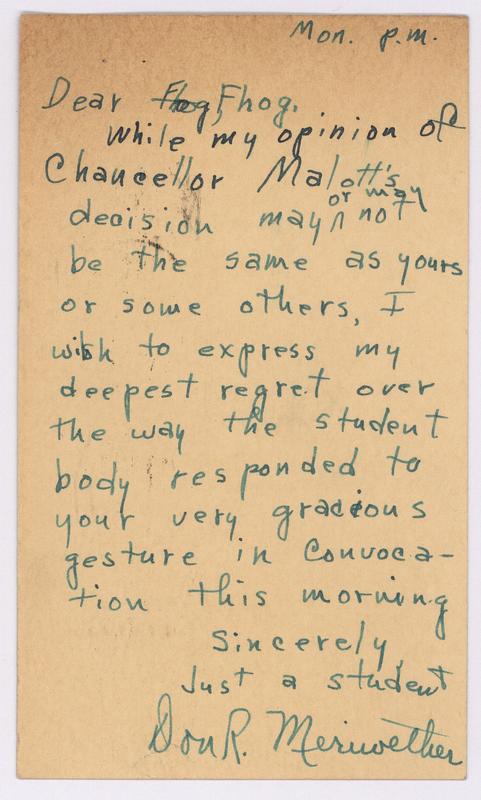 Mon. p.m.
Dear Fhog, Fhog.
While my opinion of
Chancellor Malott's
decision may or may not
be the same as yours
or some others, I
wish to express my
deepest regret over
the way the student
body responded to
your very gracious
gesture in Convoca-
tion this morning
Sincerely,
Just a student
Don R. Meriwether